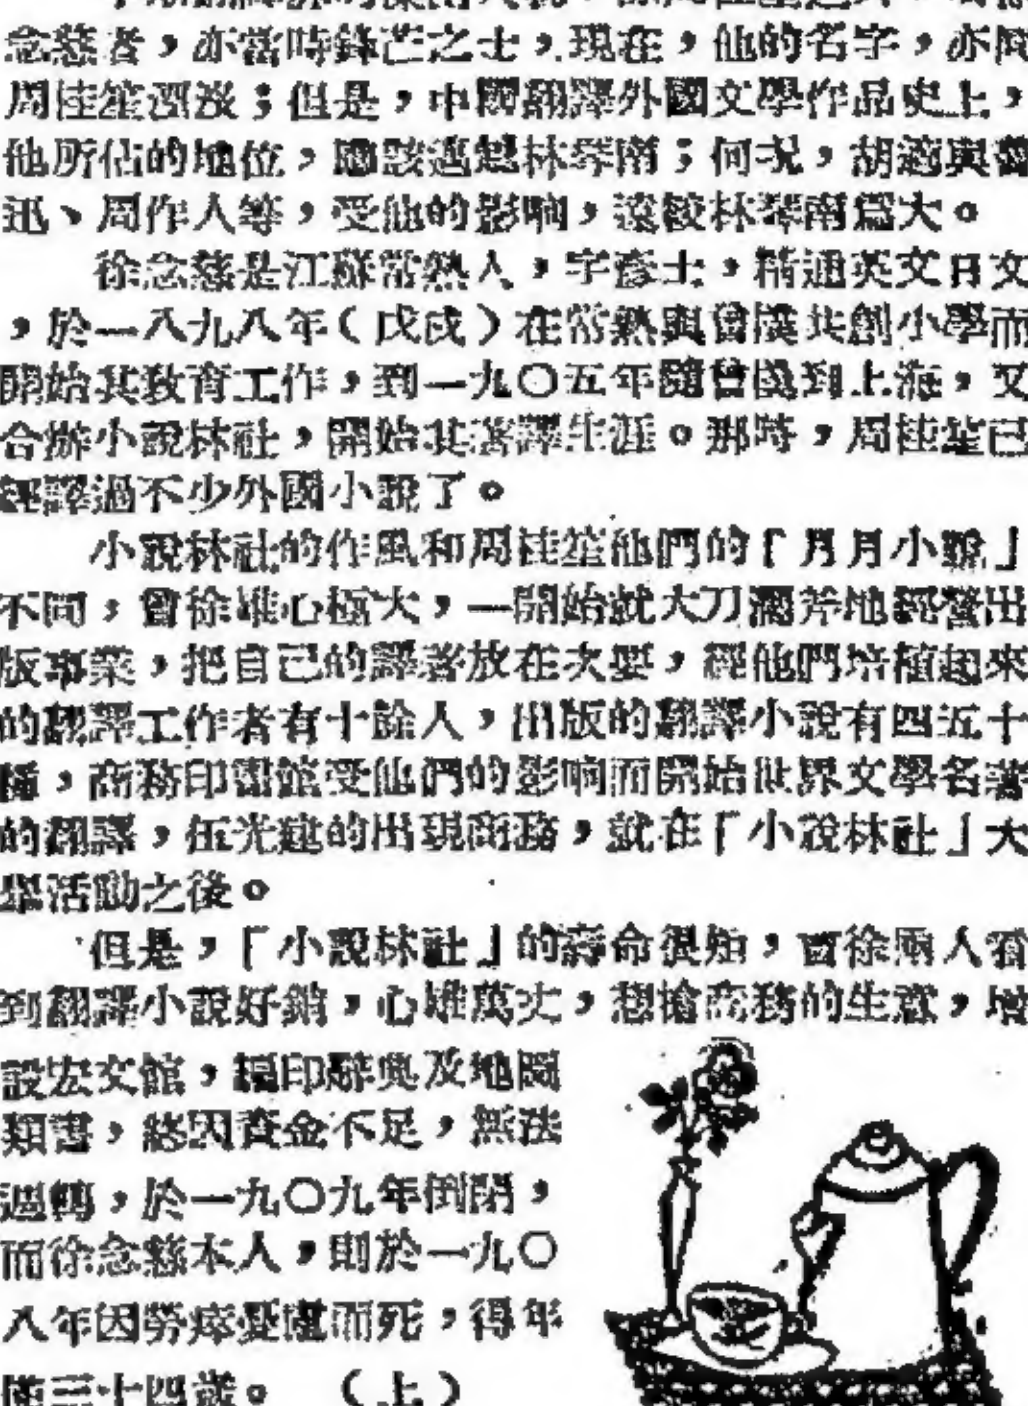 念慈者，亦當時鋒芒之士，現在，他的名字，亦同
周桂笙湮沒；但是，中國翻譯外國文學作品史上，
他所佔的地位，應該邁越林琴南；何況，胡適與魯
迅、周作人等，受他的影响，遠較林琴南爲大。
徐念慈是江蘇常熟人，字彥士，精通英文日文
，於一八九八年（戊戌）在常熟與曾樸共創小學而
開始其敎育工作，到一九〇五年隨曾樸到上海，又
合辦小說林社，開始其著譯生涯。那時，周桂笙已
經譯過不少外國小說了。
小說林社的作風和周桂笙他們的「月月小說」
不同，曾徐雄心極大，一開始就大刀濶斧地經營出
版事業，把自己的譯著放在次要，經他們培植起來
的翻譯工作者有十餘人，出版的翻譯小說有四五十
種，商務印書館受他們的影响而開始世界文學名著
的翻譯，伍光建的出現商務，就在「小說林社」大
舉活動之後。
但是，「小說林社」的壽命很短，曾徐兩人看
到翻譯小說好銷，心雄萬丈，想搶商務的生意，增
設宏文館，編印辭典及地圖
類書，終因資金不足，無法
週轉，於一九〇九年倒閉，
而徐念慈本人，則於一九〇
八年因勞瘁憂慮而死，得年
三十四歲。（上）